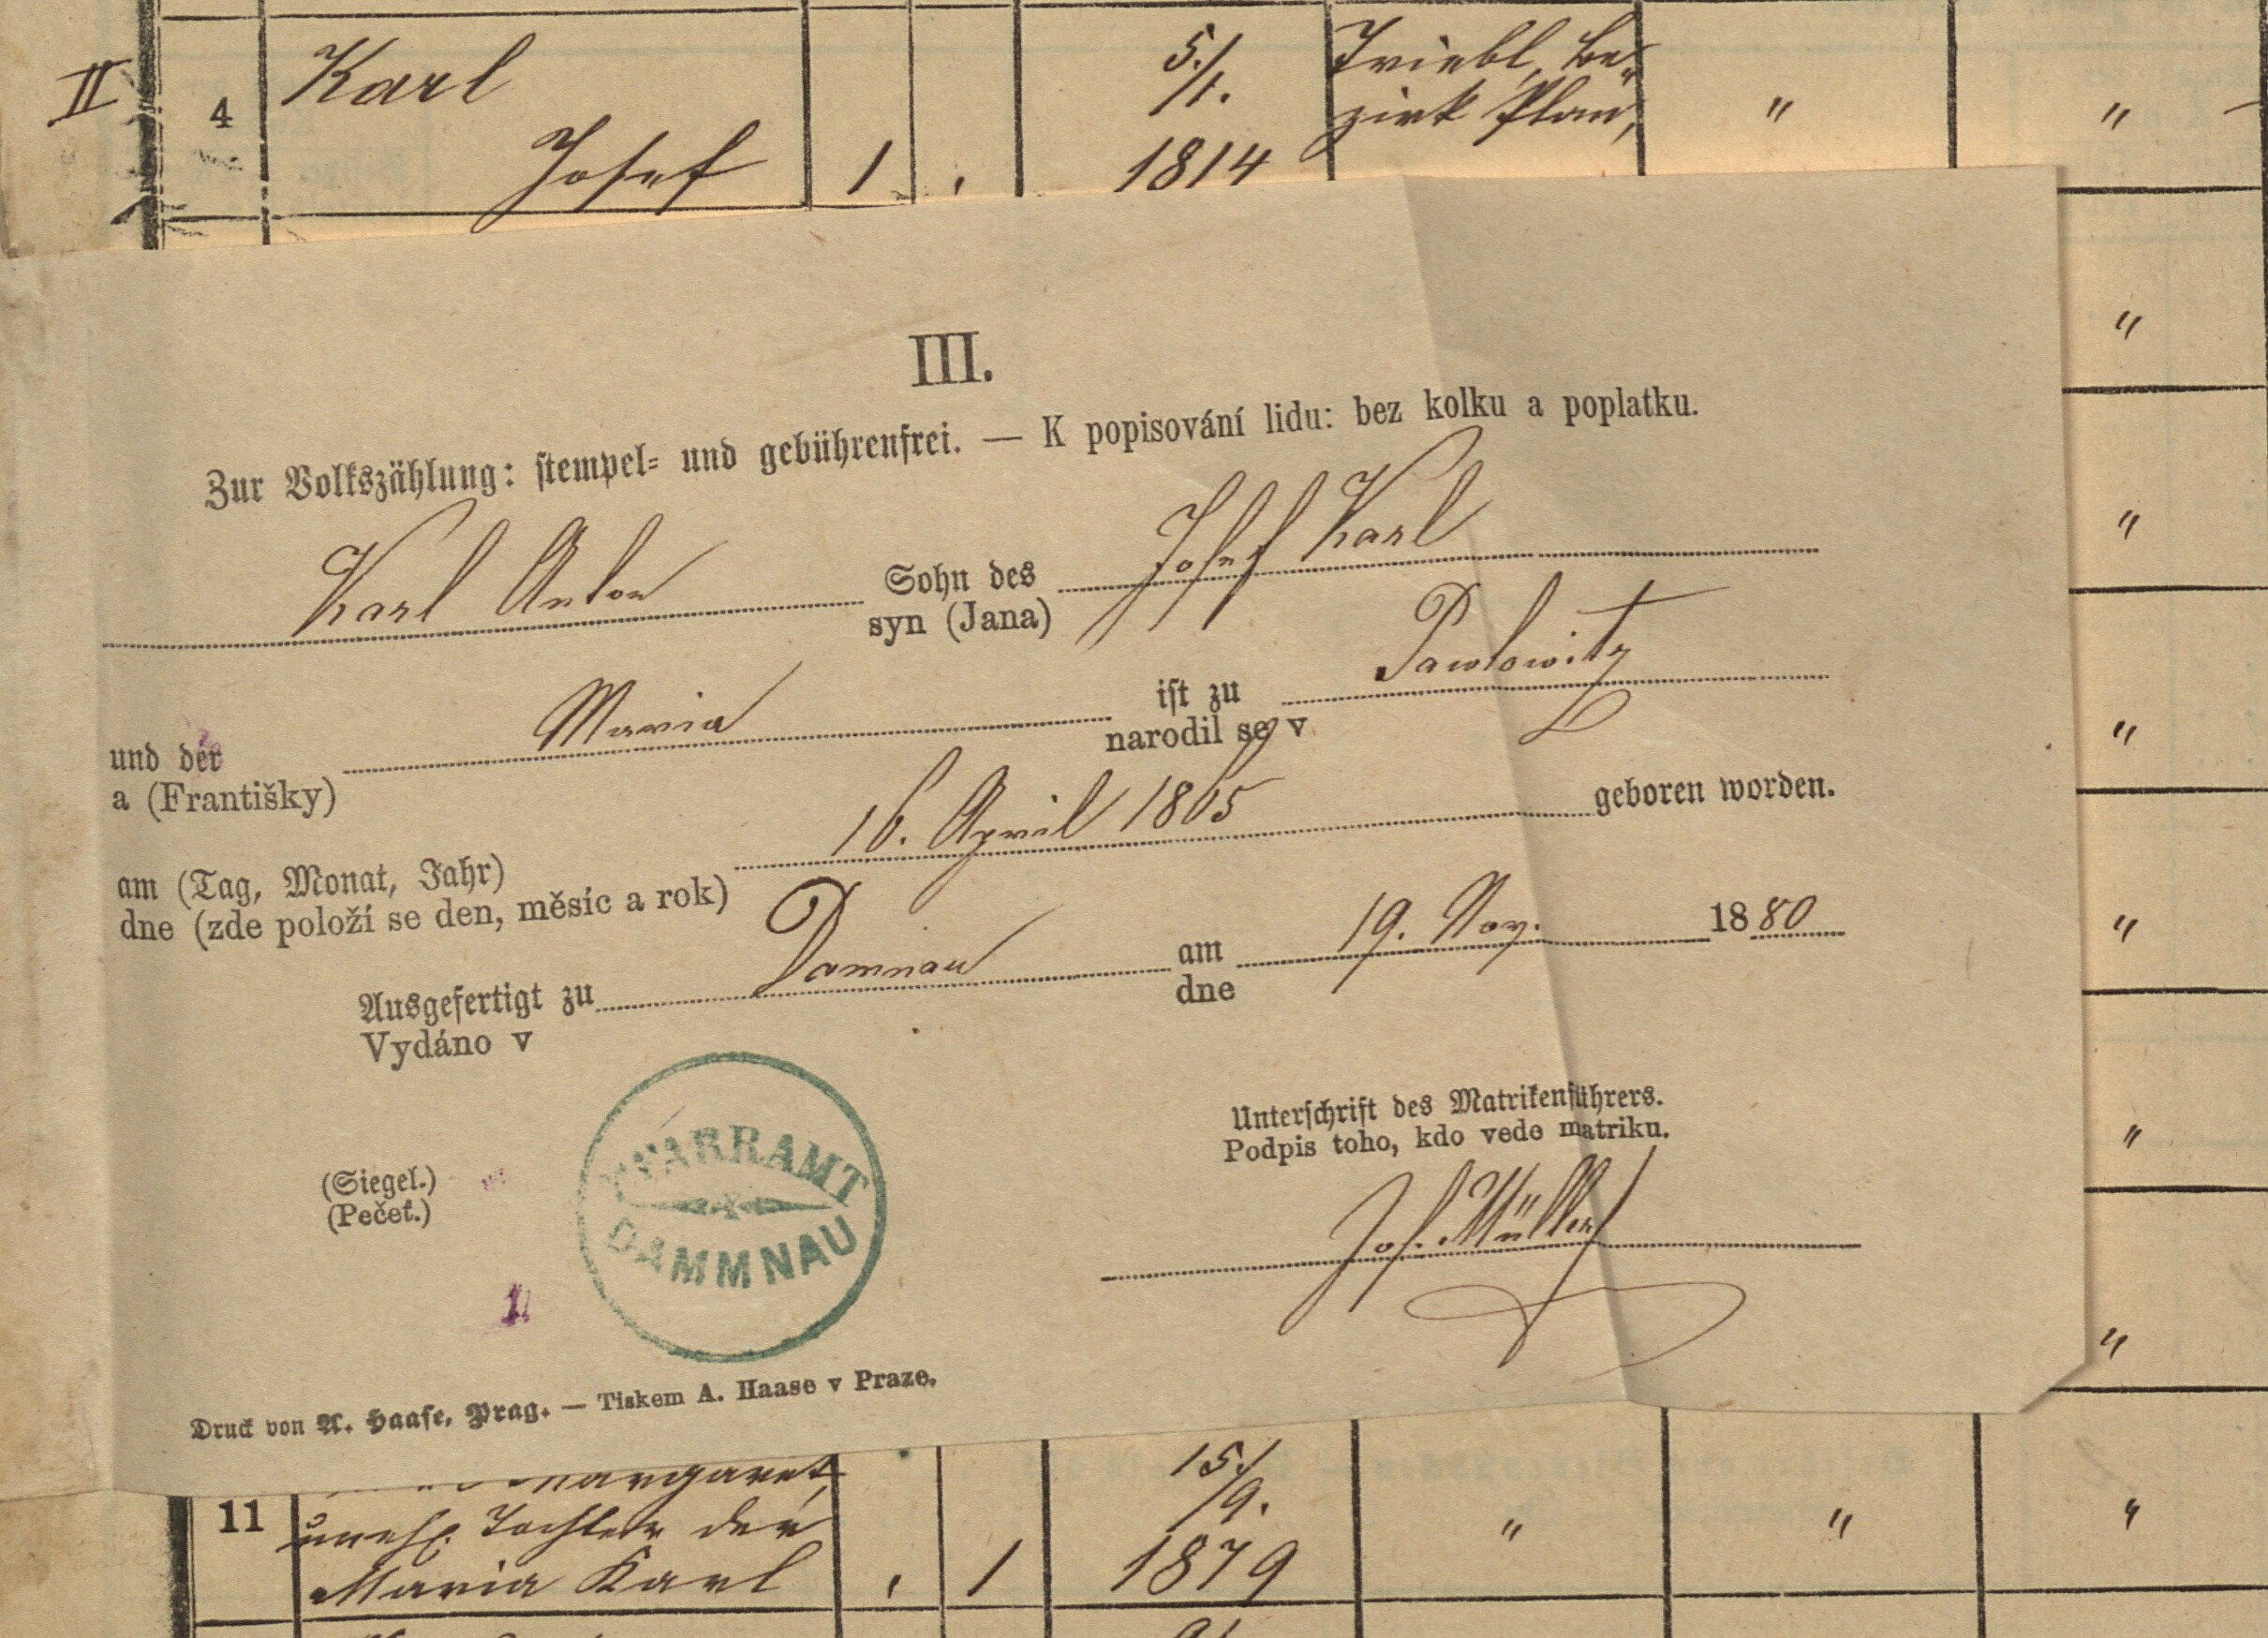 II
4
Karl
Josef
1
.
5./
/1.
1814
Triebl, Be-
zirk Plan,
"
"
III.
Zur Volkszählung: stempel- und gebührenfrei. — K popisování lidu: bez kolku a poplatku.
Karl Anton Sohn des Josef Karl
syn (Jana)
und der Maria ist zu Pawlowitz
a (Františky) narodil se v
am (Tag, Monat, Jahr) 16. April 1865 geboren worden.
dne (zde položí se den, měsíc a rok)
Ausgefertigt zu Damnau am 19. Nov. 1880
Vydáno v dne
Unterschrift des Matrikenführers.
Podpis toho, kdo vede matriku.
(Siegel.)
(Pečeť.)
PFARRAMT
DAMMNAU
Jos. Müller
Druck von A. Haase, Prag. — Tiskem A. Haase v Praze.
"
"
"
"
"
"
11
Margaret,
unehl. Tochter der
Maria Karl
.
1
15./
/9.
1879
"
"
"